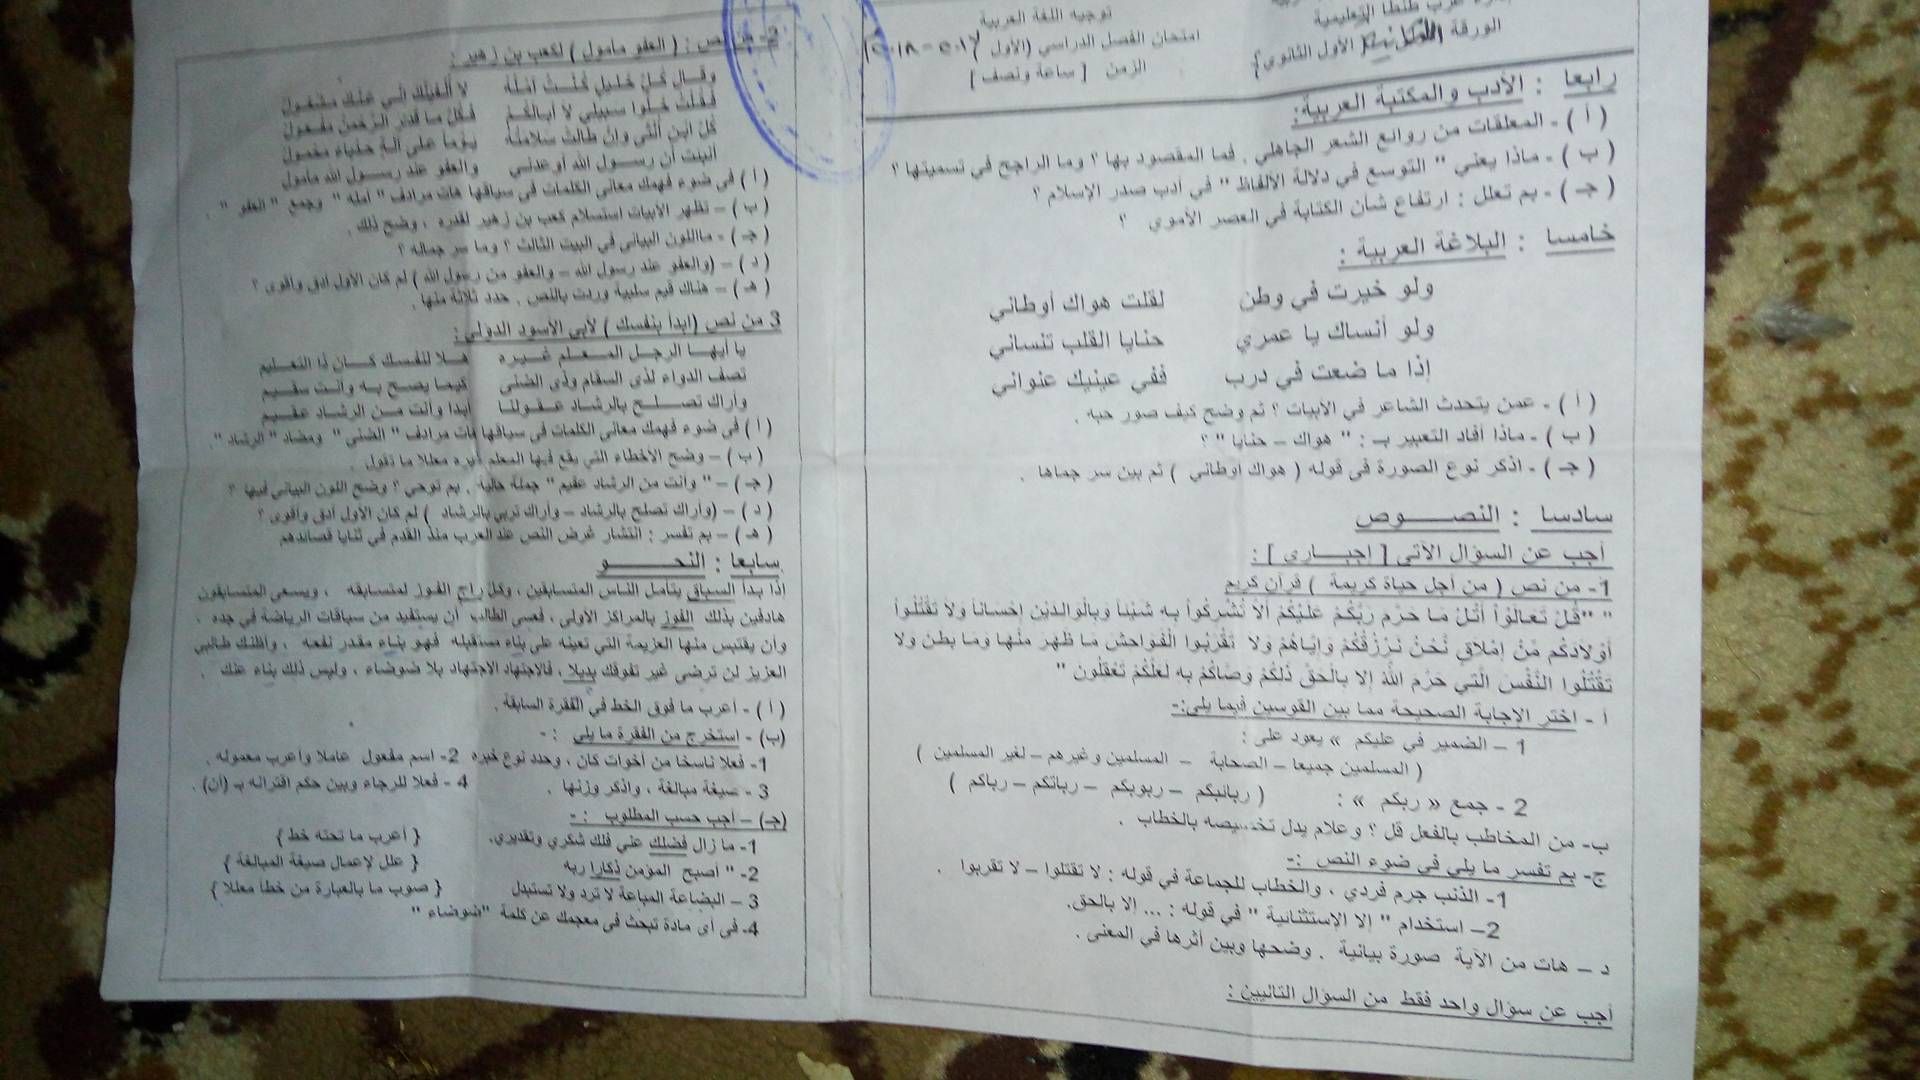 غرب طنطا التعليمية
الورقة الأول الثانوي]
توجيه اللغة العربية
امتحان الفصل الدراسي (الأول
الزمن [ ساعة ونصف ]
رابعا : الأدب والمكتبة العربية:
( أ ) - المعلقات من روائع الشعر الجاهلي . فما المقصود بها ؟ وما الراجح في تسميتها ؟
( ب ) - ماذا يعني " التوسع في دلالة الألفاظ " في أدب صدر الإسلام ؟
( جـ ) - بم تعلل : ارتفاع شأن الكتابة في العصر الأموي ؟
خامسا : البلاغة العربية :
ولو خيرت في وطن لقلت هواك أوطاني
ولو أنساك يا عمري حنايا القلب تنساني
إذا ما ضعت في درب ففي عينيك عنواني
( أ ) - عمن يتحدث الشاعر في الأبيات ؟ ثم وضح كيف صور حبه .
( ب ) - ماذا أفاد التعبير بـ : " هواك – حنايا " ؟
( جـ ) - اذكر نوع الصورة في قوله ( هواك أوطاني ) ثم بين سر جماها .
سادسا : النصـــــوص
أجب عن السؤال الآتي [ إجبـــارى ] :
1- من نص ( من أجل حياة كريمة ) قرآن كريم
" "قُلْ تَعَالَوْا أَتْلُ مَا حَرَّمَ رَبُّكُمْ عَلَيْكُمْ أَلاَّ تُشْرِكُواْ بِهِ شَيْئًا وَبِالْوَالِدَيْنِ إِحْسَاناً وَلاَ تَقْتُلُواْ
أَوْلاَدَكُم مِّنْ إِمْلاَقٍ نَّحْنُ نَرْزُقُكُمْ وَإِيَّاهُمْ وَلاَ تَقْرَبُوا الْفَوَاحِشَ مَا ظَهَرَ مِنْهَا وَمَا بَطَنَ وَلاَ
تَقْتُلُوا النَّفْسَ الَّتِي حَرَّمَ اللهُ إِلاَّ بِالْحَقِّ ذَلِكُمْ وَصَّاكُمْ بِهِ لَعَلَّكُمْ تَعْقِلُونَ "
أ - اختر الإجابة الصحيحة مما بين القوسين فيما يلي:-
1 – الضمير في عليكم » يعود على :
( المسلمين جميعا – الصحابة – المسلمين وغيرهم – لغير المسلمين )
2 - جمع « ربكم » : ( ربائبكم – ربوبكم – ربانكم – رباكم )
ب- من المخاطب بالفعل قل ؟ وعلام يدل تخصيصه بالخطاب .
ج- بم تفسر ما يلي في ضوء النص :-
1- الذنب جرم فردي ، والخطاب للجماعة في قوله : لا تقتلوا – لا تقربوا .
2– استخدام " إلا الإستثنائية " في قوله : ... إلا بالحق.
د – هات من الآية صورة بيانية . وضحها وبين أثرها في المعنى .
أجب عن سؤال واحد فقط من السؤال التاليين :
2- من نص : ( العفو مأمول ) لكعب بن زهير :
وقـال كُلُّ خليلٍ كُنْتُ آمُلُهُ لا أُلْهِيَنَّكَ إنّي عَنكَ مشغولُ
فقلتُ خَلُّوا سبيلي لا أبالَكُمُ فكُلُّ ما قَدَّرَ الرَّحمنُ مفعولُ
كُلُّ ابنِ أُنْثَى وإنْ طالتْ سلامتُهُ يوْماً على آلةٍ حدباءَ محمولُ
أُنبئتُ أن رســولَ الله أوعدني والعفو عند رسـولِ الله مأمولُ
( أ ) في ضوء فهمك معانى الكلمات في سياقها هات مرادف " آمله " وجمع " العفو " .
( ب ) – تظهر الأبيات استسلام كعب بن زهير لقدره ، وضح ذلك .
( جـ ) - مااللون البيانى في البيت الثالث ؟ وما سر جماله ؟
( د ) – (والعفو عند رسول الله – والعفو من رسول الله ) لم كان الأول أدق وأقوى ؟
( هـ ) – هناك قيم سلبية وردت بالنص . حدد ثلاثة منها .
3 من نص (ابدأ بنفسك ) لأبي الأسود الدولي :
يا أيهـا الرجـل المعـلم غيـره هـلا لنفسـك كـان ذا التعليـم
تصف الدواء لذى السقام وذى الضنى كيمـا يصـح بـه وأنـت سقيـم
وأراك تصـلـح بالرشـاد عـقـولنـا أبدا وأنت مـن الرشاد عقيـم
( أ ) في ضوء فهمك معانى الكلمات في سياقها هات مرادف " الضنى " ومضاد " الرشاد ".
( ب ) – وضح الأخطاء التي يقع فيها المعلم غيره معللا ما تقول .
( جـ ) – " وأنت من الرشاد عقيم " جملة حالية . بم توحي ؟ وضح اللون البياني فيها ؟
( د ) – (وأراك تصلح بالرشاد – وأراك تربي بالرشاد ) لم كان الأول أدق وأقوى ؟
( هـ ) – بم تفسر : انتشار غرض النص عند العرب منذ القدم في ثنايا قصائدهم
سابعا : النحـــــو
إذا بدأ السباق يتأمل الناس المتسابقين ، وكل راج الفوز لمتسابقه ، ويسعى المتسابقون
هادفين بذلك الفوز بالمراكز الأولى ، فعسى الطالب أن يستفيد من سباقات الرياضة في جده ،
وأن يقتبس منها العزيمة التي تعينه على بناء مستقبله فهو بناء مقدر نفعه ، وأظنك طالبي
العزيز لن ترضى غير تفوقك بديلا ، فالاجتهاد الاجتهاد بلا ضوضاء ، وليس ذلك بناء عنك .
( أ ) - أعرب ما فوق الخط في الفقرة السابقة .
(ب) - استخرج من الفقرة ما يلي : -
1- فعلا ناسخا من أخوات كان ، وحدد نوع خبره 2- اسم مفعول عاملا وأعرب معموله .
3 - صيغة مبالغة ، واذكر وزنها . 4 - فعلا للرجاء وبين حكم اقترانه بـ (أن) .
(جـ) – أجب حسب المطلوب : -
1- ما زال فضلك علي فلك شكري وتقديري. { أعرب ما تحته خط }
2- " أصبح المؤمن ذكارا ربه { علل لإعمال صيغة المبالغة }
3 – البضاعة المباعة لا ترد ولا تستبدل { صوب ما بالعبارة من خطأ معللا }
4- في أي مادة تبحث في معجمك عن كلمة "ضوضاء "